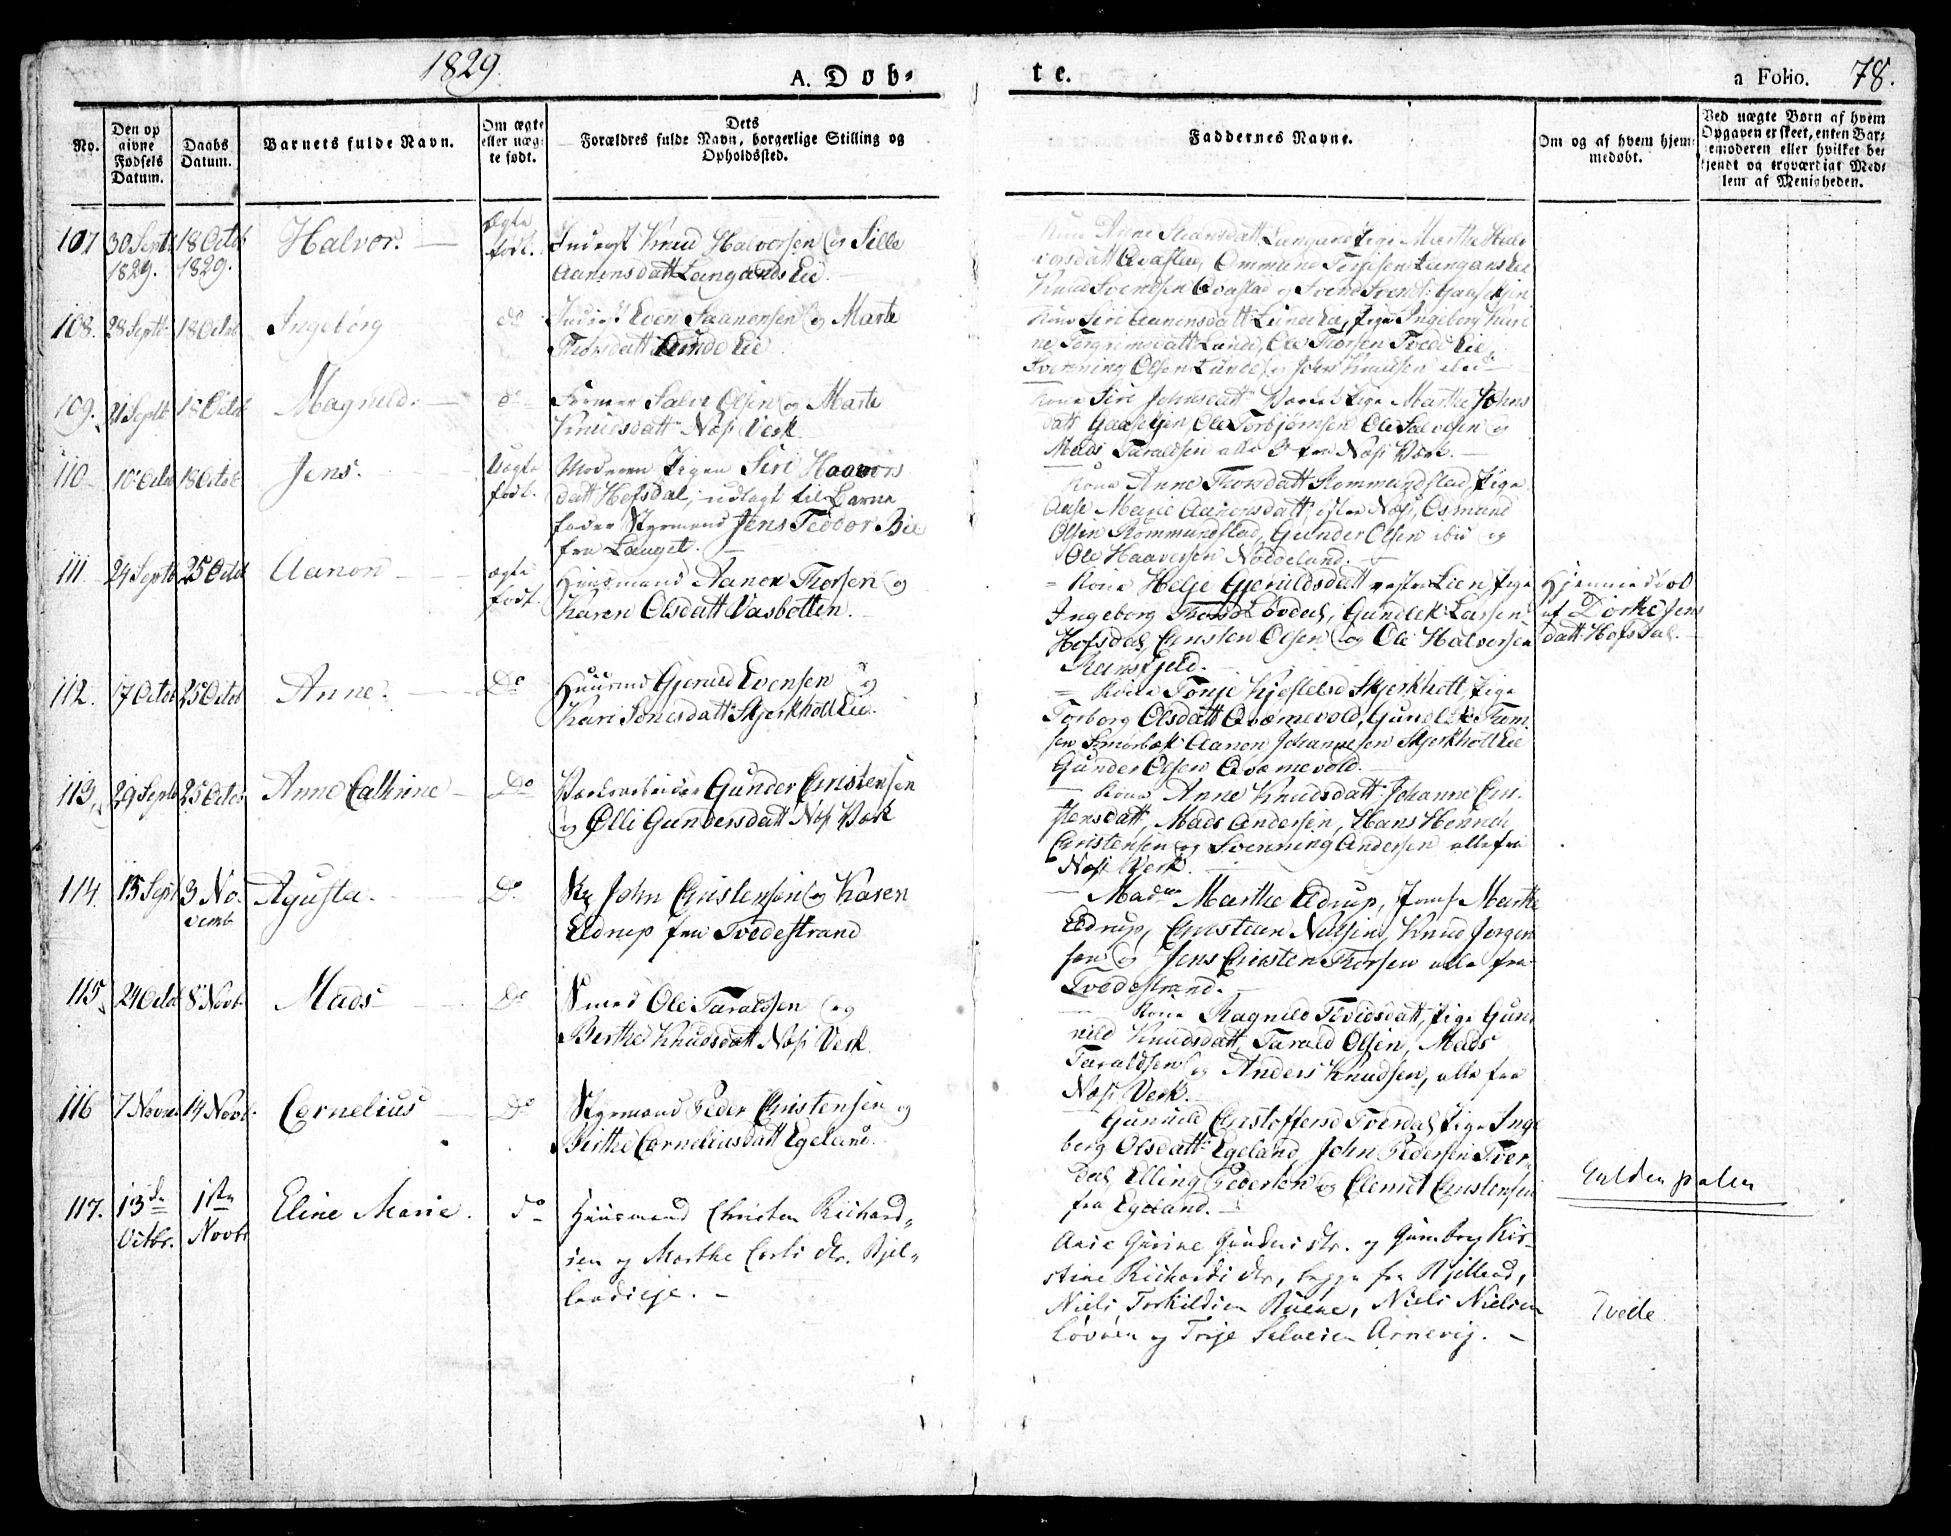 1829.
A. Døb-
te.
a Folio. 78.
No.
Den op
givne
Fødsels
Datum.
Daabs
Datum.
Barnets fulde Navn.
Om ægte
eller uæg-
te født.
Dets
Forældres fulde Navn, borgerlige Stilling og
Opholdssted.
Faddernes Navne.
Om og af hvem hjem-
medøbt.
Ved uægte Børn af hvem
Opgaven er skeet, enten Bar-
nemoderen eller hvilket be-
kjendt og troværdigt Med-
lem af Menigheden.
107 30 Septb 18 Octob Halvor. Ægte Inderst Knud Halvorsen og Sille
1829. 1829. født. Aanensdatt Langands Eie
Kone Anne Langand Pige Marthe Hal-
vorsdatt Qvastad, Ommund Terjesen Langans Eie
Knud Svendsen Qvastad og Svend Svends: Gaaskjen
108. 28 Septb 18 Octob Ingebørg do Inderst Even Saanonsen og Marte
Thorsdatt Lunde Eie
Kone Siri Aanensdatt Lunde Eie, Pige Ingeborg Kari-
ne Torgrimsdatt Lunde, Ole Thorsen Tvede Eie
Svenning Olsen Lunde og John Knudsen
109. 21 Septb 18 Octob Magnild. do Former Salve Olsen og Marte
Knudsdatt Næs Verk
Kone Siri Johnsdatt Pige Marthe Johns
datt Gaaskjen Ole Torbjørnsen Ole Salvesen og
Mads Taraldsen alle 3 fra Næs Værk.
110 10 Octob 18 Octob Jens. Uægte Moderen Pigen Siri Haavors
født. datt Hofsdal, udlagt til Barne
fader Styrmand Jens Teodor Bie
fra Langet.
Kone Anne Thorsdatt Rommundstad, Pige
Aase Marie Aanensdatt Næs, Osmund
Olsen Rommundstad, Gunder Olsen ibid og
Ole Haaversen Noddeland.
111 24 Septb 25 Octob Aanon ægte Huusmand Aanon Thorsen og
født Karen Olsdatt Vasbotten.
Kone Helje Gjeruldsdatt Lien Pige
Ingeborg Thorsd Løvdal, Gundlek Larsen
Hofsdal, Christen Olsen og Ole Halversen
Ramsfjeld.
Hjemmedøbt
af Dorthe Jens
datt Hofsdal.
112. 17 Octob 25 Octob Anne. Do Huusmd Gjeruld Evensen og
Kari Jensdatt Skjerkholt Eie.
Kone Tonje Kjostelsd Skjerkholt Pige
Torborg Olsdatt Qvæmevold, Gundlek Thom-
sen Smørbæk Aanon Johannesen Skjerkholt Eie
Gunder Olsen Qvæmevold.
113. 29 Septb 25 Octob Anne Cathrine Do Verksarbeider Gunder Christensen
og Ølli Gundersdatt Næs Værk
Kone Anne Knudsdatt Johanne Chri-
stensdatt, Mads Andersen, Hans Henrich
Christensen og Svenning Andersen alle fra
Næs Verk.
114. 15 Sept 3 No- Agusta. Do Sk John Christensen og Karen
vemb Eldrup fra Tvedestrand
Madm Marthe Eldrup, Jomf Marthe
Eldrup, Christian Nielsen, Knud Jørgen
sen og Jens Christen Thorsen alle fra
Tvedestrand.
115. 24 Octob 8 Novb Mads Do Smed Ole Taraldsen og
Berthe Knudsdatt Næs Verk
Kone Ragnild Tevedsdatt, Pige Gun-
nild Knudsdatt, Tarald Olsen, Mads
Taraldsen og Anders Knudsen, alle fra
Næs Verk.
116 7 Novm 14 Novb. Cornelius Do Styrmand Peder Christensen og
Birthe Corneliusdatt Egeland.
Gunnild Christoffersd Tverdal, Pige Inge
borg Olsdatt Egeland, John Pedersen Tver-
dal, Elling Pedersen og Clemet Christensen
fra Egeland.
117. 13de 1ste Eline Marie. do Huusmand Christen Richard-
Octbr. Novbr sen og Marthe Carlsdtr. Kjel-
landseje.
Anne Gurine Gundersdtr. og Gumborg Kir-
stine Richardsdtr, begge fra Kjelland,
Niels Torkildsen Ruene, Niels Nielsen
Løvøen og Terje Salvesen Arnevig.
Tvede